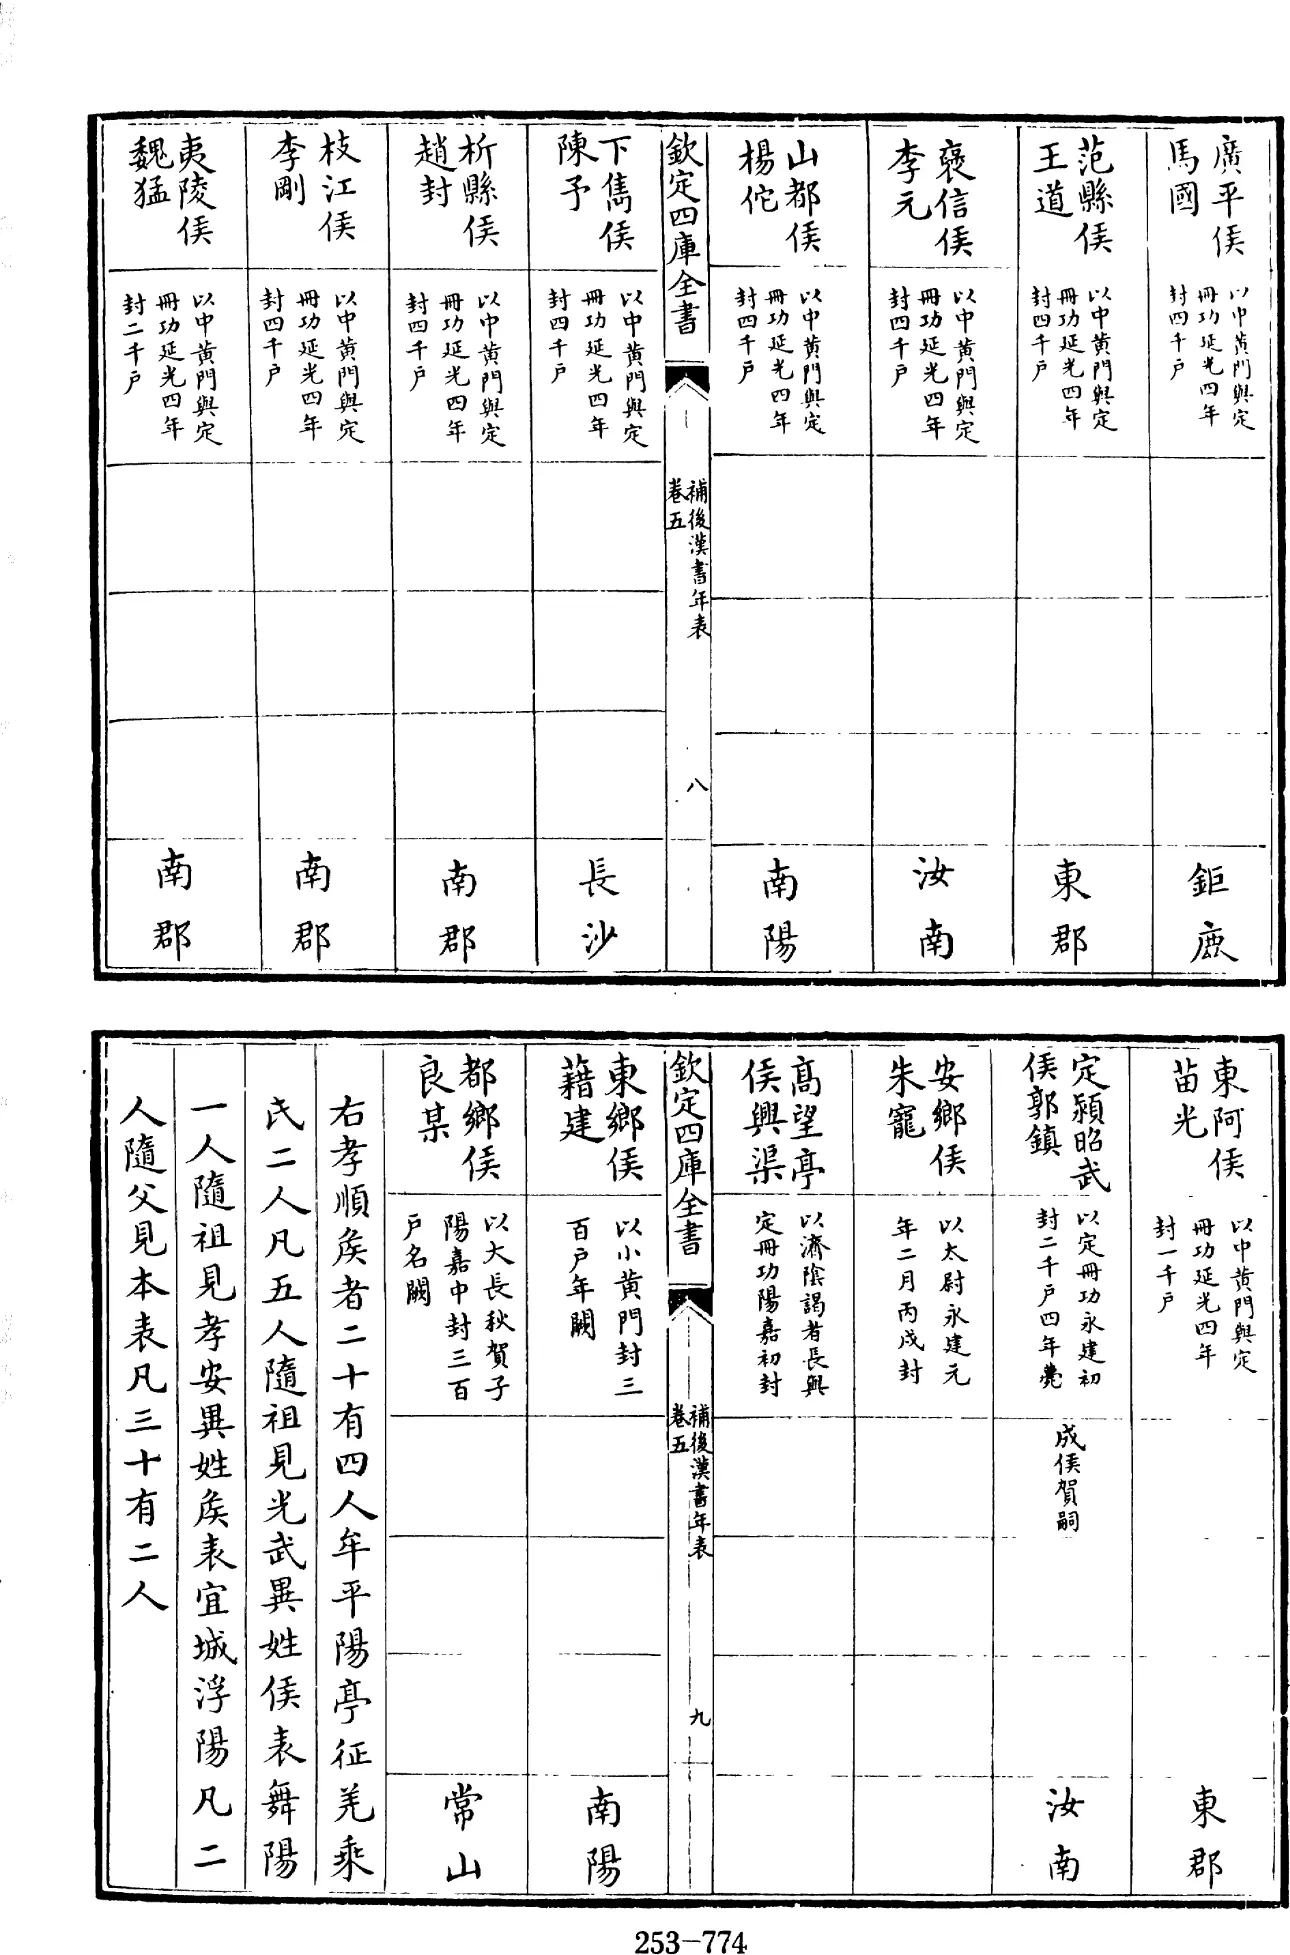 廣平侯
馬國
以中黃門與定
冊功延光四年
封四千戶
鉅鹿
范縣侯
王道
以中黃門與定
冊功延光四年
封四千戶
東郡
褒信侯
李元
以中黃門與定
冊功延光四年
封四千戶
汝南
山都侯
楊佗
以中黃門與定
冊功延光四年
封四千戶
南陽
欽定四庫全書
補後漢書年表
卷五
八
下雋侯
陳予
以中黃門與定
冊功延光四年
封四千戶
長沙
析縣侯
趙封
以中黃門與定
冊功延光四年
封四千戶
南郡
枝江侯
李剛
以中黃門與定
冊功延光四年
封四千戶
南郡
夷陵侯
魏猛
以中黃門與定
冊功延光四年
封二千戶
南郡
東阿侯
苗光
以中黃門與定
冊功延光四年
封一千戶
東郡
定潁昭武
侯郭鎮
以定冊功永建初
封二千戶四年薨
成侯賀嗣
汝南
安鄉侯
朱寵
以太尉永建元
年二月丙戌封
高望亭
侯興渠
以濟陰謁者長與
定冊功陽嘉初封
欽定四庫全書
補後漢書年表
卷五
九
東鄉侯
藉建
以小黃門封三
百戶年闕
南陽
都鄉侯
良某
以大長秋賀子
陽嘉中封三百
戶名闕
常山
右孝順矦者二十有四人牟平陽亭征羌乘
氏二人凡五人隨祖見光武異姓侯表舞陽
一人隨祖見孝安異姓矦表宜城浮陽凡二
人隨父見本表凡三十有二人
253-774